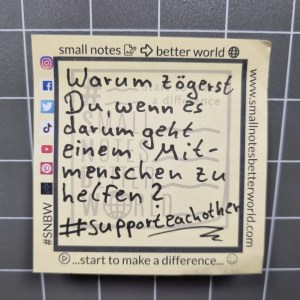 small notes ➪ better world
Warum zögerst
Du, wenn es
darum geht
einem Mit-
menschen zu
helfen?
#supporteachother
...start to make a difference...
#SNBW
www.smallnotesbetterworld.com